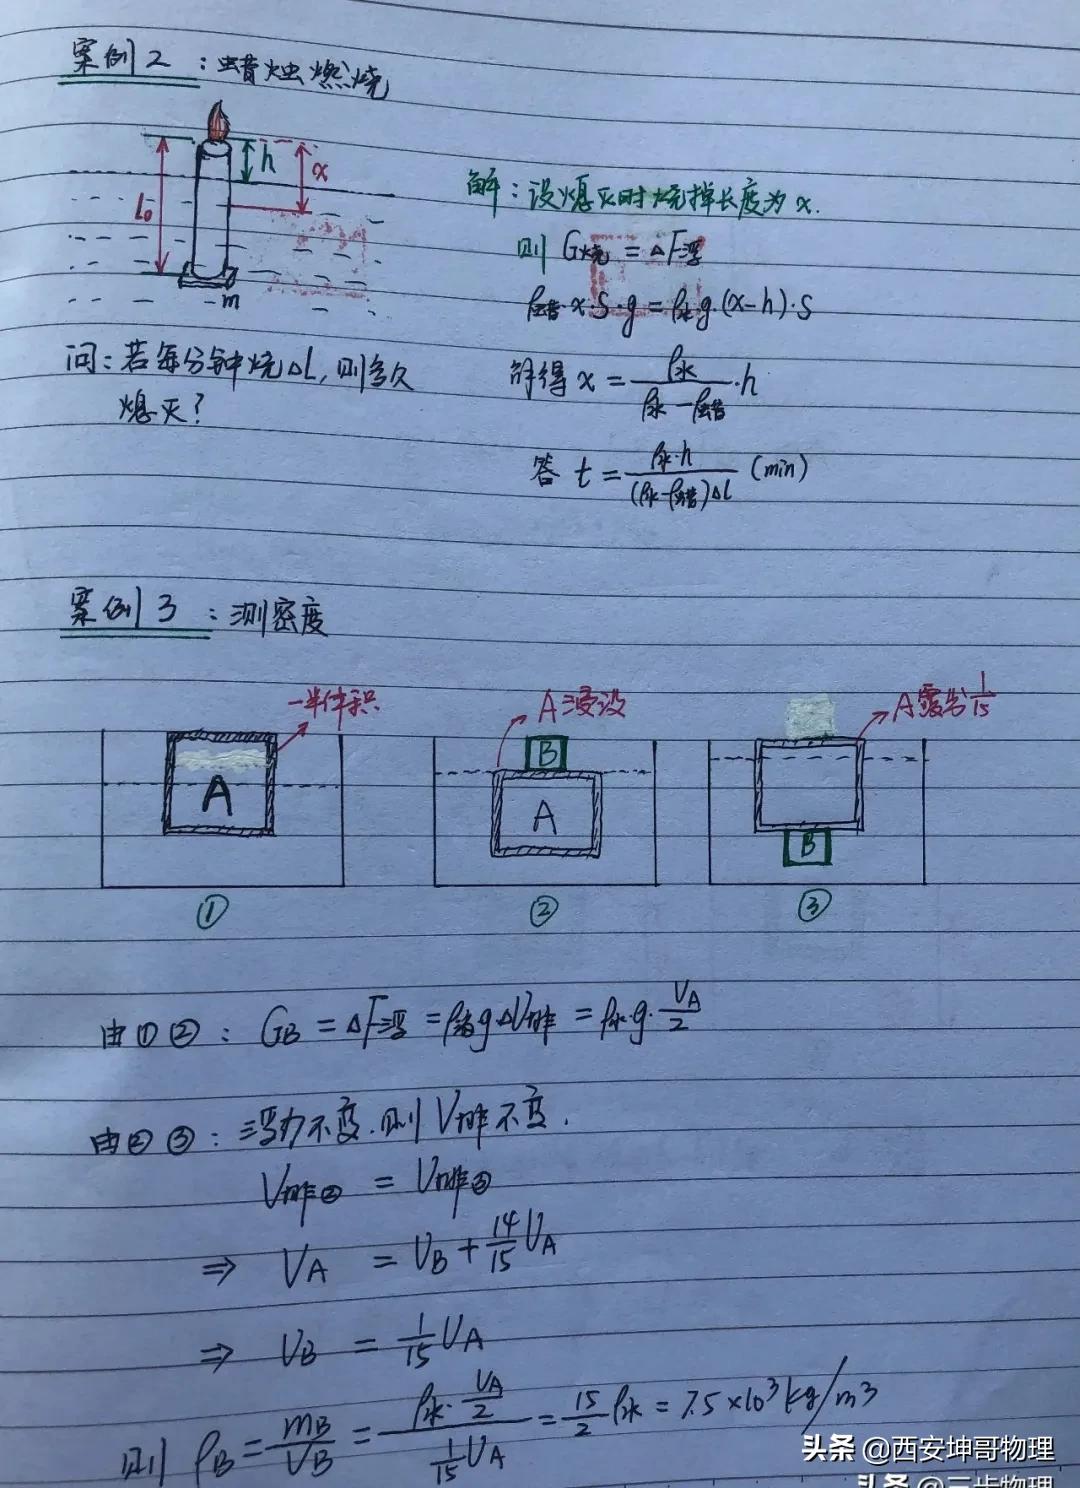 案例2：蜡烛燃烧
h
x
L₀
m
解：设熄灭时烧掉长度为x.
则 G烧 = ΔF浮
ρ蜡·x·S·g = ρ水g·(x-h)·S
问：若每分钟烧ΔL，则多久
熄灭？
解得 x = ρ水/(ρ水-ρ蜡)·h
答 t = ρ水·h/((ρ水-ρ蜡)ΔL) (min)
案例3：测密度
一半体积
A浸没
A露出1/15
A
B
A
B
① ② ③
由①②：G_B = ΔF浮 = ρ液gΔV排 = ρ水·g·V_A/2
由②③：浮力不变.则V排不变.
V排② = V排③
⇒ V_A = V_B + 14/15 V_A
⇒ V_B = 1/15 V_A
则 ρ_B = m_B/V_B = (ρ水·V_A/2)/(1/15 V_A) = 15/2 ρ水 = 7.5×10³kg/m³
头条 @西安坤哥物理
头条 @三步物理